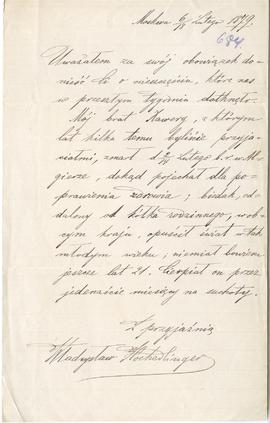 Moskwa 6/18 Lutego 1879.
684
Uważałem za swój obowiązek do-
nieść Ci o nieszczęściu, które nas
w przeszłym tygodniu dotknęło.
Mój brat Xawery, z którym
lat kilka temu byliście przyja-
ciołmi, zmarł d. Lutego b. r. w Al-
gierze, dokąd pojechał dla po-
prawienia zdrowia; biedak, od-
dalony od kółka rodzinnego, w ob-
cym kraju, opuścił świat w tak
młodym wieku; niemiał bowiem
jeszcze lat 21. Cierpiał on przez
jedenaście miesięcy na suchoty.
Z przyjaźnią
Władysław